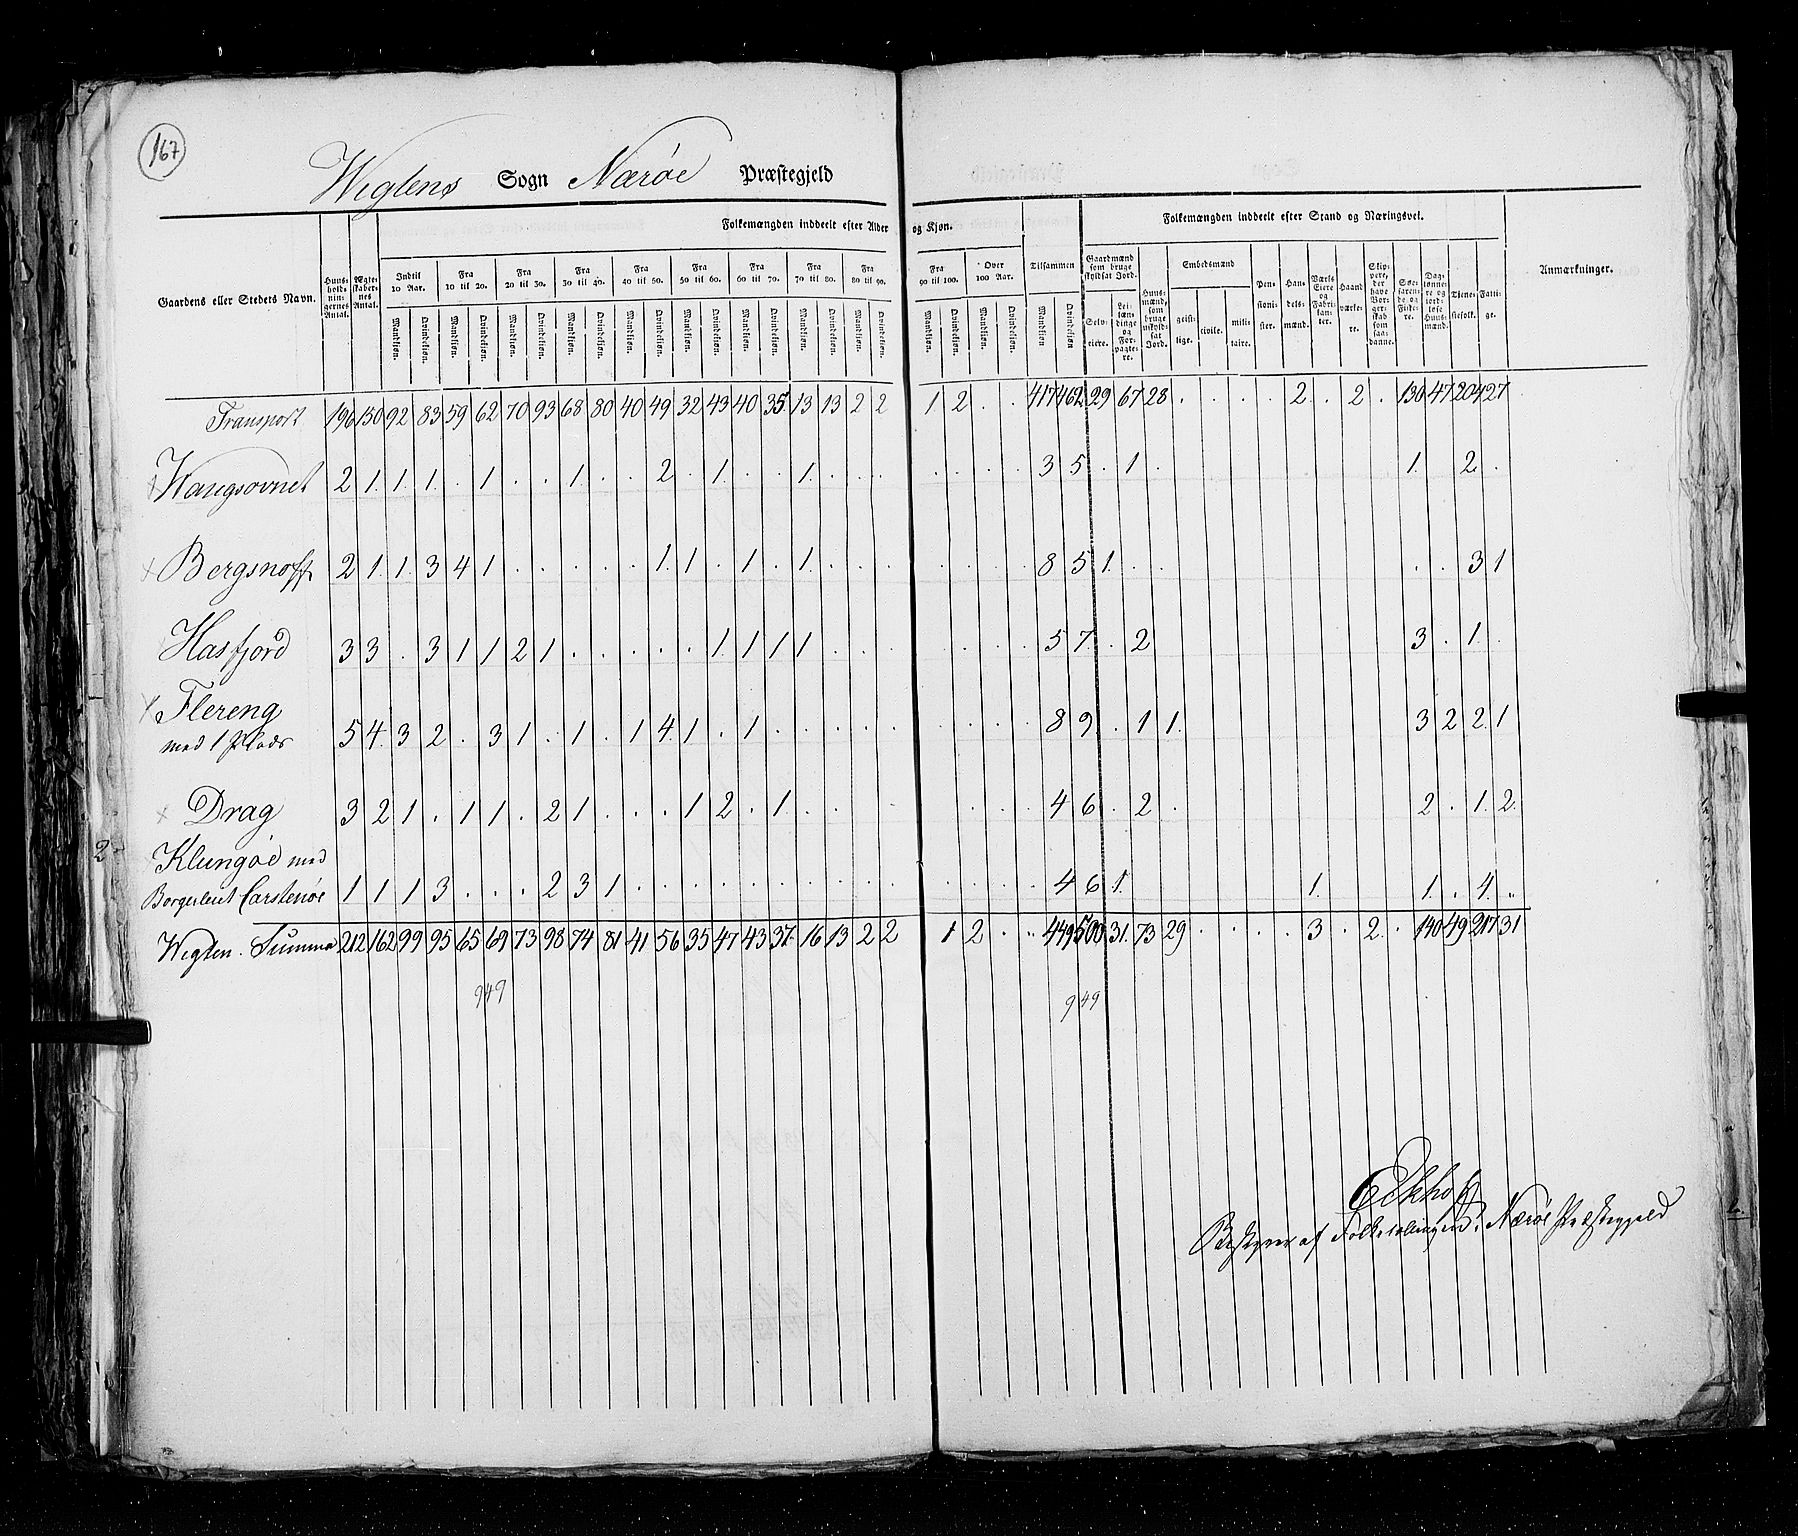 167
Wigtens Sogn Nærøe Præstegjeld
Folkemængden inddeelt efter Alder og Kjøn.
Folkemængden inddeelt efter Stand og Næringsvei.
Gaardens eller Stedets Navn.
Huusholdningernes Antal.
Ægteskabernes Antal.
Indtil 10 Aar.
Fra 10 til 20.
Fra 20 til 30.
Fra 30 til 40.
Fra 40 til 50.
Fra 50 til 60.
Fra 60 til 70.
Fra 70 til 80.
Fra 80 til 90.
Fra 90 til 100.
Over 100 Aar.
Tilsammen
Mandkjøn. Qvindekjøn.
Gaardmænd som bruge skyldsat Jord.
Selveiere.
Leilændinge og Forpagtere.
Huusmænd, som bruge uskyldsat Jord.
Embedsmænd
geistlige. civile. militaire.
Pensionister.
Handelsmænd.
Værkseiere og Fabrikanter.
Haandværkere.
Skippere, der have Borgerskab som saadanne.
Søefarende og Fiskere.
Daglønnere og jordløse Huusmænd.
Tjenestefolk.
Fattige.
Anmærkninger.
Transport 196 150 92 83 59 62 70 93 68 80 40 49 32 43 40 35 13 13 2 2 1 2 . . 417 462 29 67 28 . . . . 2 . 2 . 130 47 204 27
Wangsovnet 2 1 1 1 . 1 . . 1 . . 2 . 1 . . 1 . . . . . . . 3 5 . 1 . 1 . 2 .
Bergsnoff 2 1 1 3 4 1 . . . . . 1 1 . 1 . 1 . . . . . . . 8 5 1 . . . . 3 1
Hasfjord 3 3 . 3 1 1 2 1 . . . . . 1 1 1 1 . . . . . . . 5 7 . 2 3 . 1 .
Flereng
med 1 Plads 5 4 3 2 . 3 1 . 1 . 1 4 1 . 1 . . . . . . . . . 8 9 . 1 1 3 2 2 1
Drag 3 2 1 . 1 1 . 2 1 . . . 1 2 . 1 . . . . . . . . 4 6 . 2 . 2 . 1 2
2
Klungøe med
Borgerleut Carstenøe 1 1 1 3 . . . 2 3 1 . . . . . . . . . . . . . . 4 6 1 1 1 . 4 "
Wigten. Summa 212 162 99 95 65 69 73 98 74 81 41 56 35 47 43 37 16 13 2 2 1 2 . " 449 500 31 73 29 . . . . 3 . 2 . 140 49 217 31
949 949
Eckhoff
Bestyrer af Folketællingen i Nærøe Præstegjeld